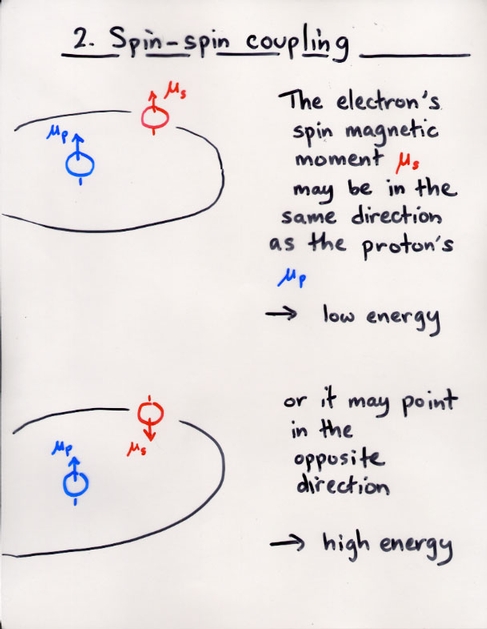 2. Spin-spin coupling
μs
μp
The electron's
spin magnetic
moment μs
may be in the
same direction
as the proton's
μp
→ low energy
μp
μs
or it may point
in the
opposite
direction
→ high energy